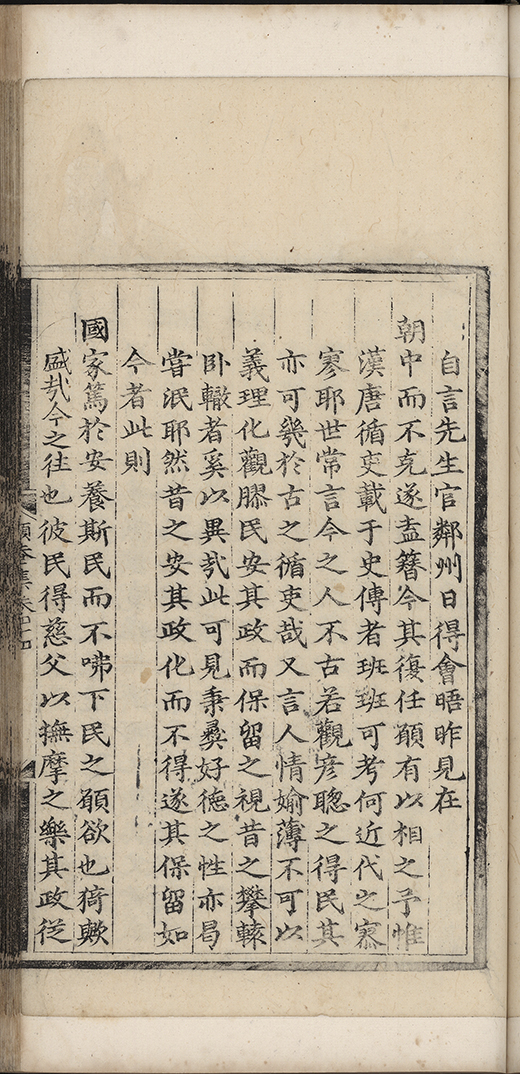 自言先生官鄰州日得會晤昨見在
朝中而不克遂盍簪今其復任願有以相之予惟
漢唐循吏載于史傳者班班可考何近代之寡
寥耶世常言今之人不古若觀彦聦之得民其
亦可幾於古之循吏哉又言人情媮薄不可以
義理化觀膠民安其政而保留之視昔之攀轅
卧轍者奚以異㢤此可見秉彝好德之性亦曷
甞泯耶然昔之安其政化而不得遂其保留如
今者此則
國家篤於安養斯民而不咈下民之願欲也猗歟
盛㢤今之往也彼民得慈父以撫摩之樂其政従